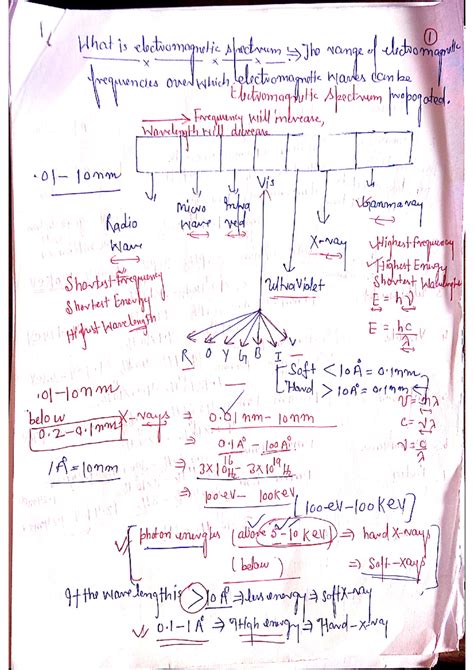 1
①
What is electromagnetic spectrum ⇒ The range of electromagnetic
frequencies over which electromagnetic waves can be
Electromagnetic Spectrum propogated.
→ Frequency will increase,
Wavelength will decrease
.01-10nm
Vis
Radio Wave
Micro Wave
Infra red
UltraViolet
X-ray
Gammaray
Shortest Frequency
Shortest Energy
Highest Wavelength
Highest Frequency
Highest Energy
Shortest Wavelength
E = hν
E = hc/λ
R O Y G B I V
Soft < 10A° = 0.1nm
Hard > 10A° = 0.1nm
.01-10nm
below
0.2-0.1nm
X-rays ⇒ 0.01nm-10nm
⇒ 0.1A° - 100A°
1A° = 10nm
⇒ 3X10^16 Hz - 3X10^19 Hz
⇒ 100ev - 100kev
[100-ev-100KeV]
c = νλ
ν = c/λ
photon energies (above 5-10 KeV) ⇒ hard X-rays
(below) ⇒ Soft-Xays
If the wavelength is > 10A° ⇒ less energy ⇒ Soft X-ray
0.1-1A° ⇒ High energy ⇒ Hard-X-ray